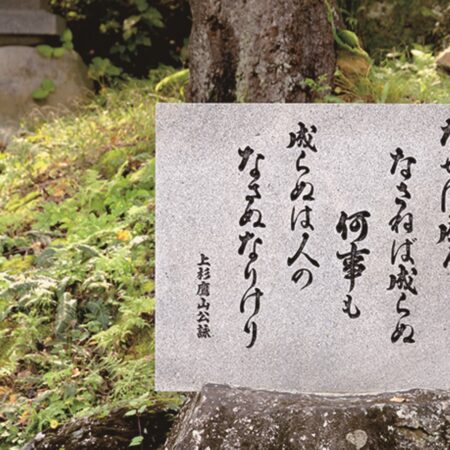 なさねば成らぬ
何事も
成らぬは人の
なさぬなりけり
上杉鷹山公詠